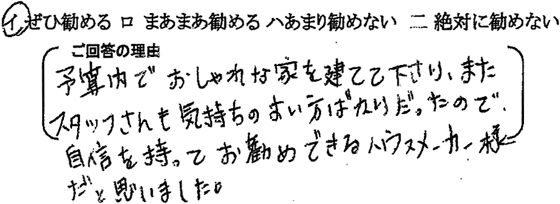 イ.ぜひ勧める ロ まあまあ勧める ハあまり勧めない ニ 絶対に勧めない
ご回答の理由
予算内で おしゃれな家を建てて下さり、また
スタッフさんも気持ちのよい方ばかりだったので、
自信を持って お勧めできるハウスメーカー様
だと思いました。